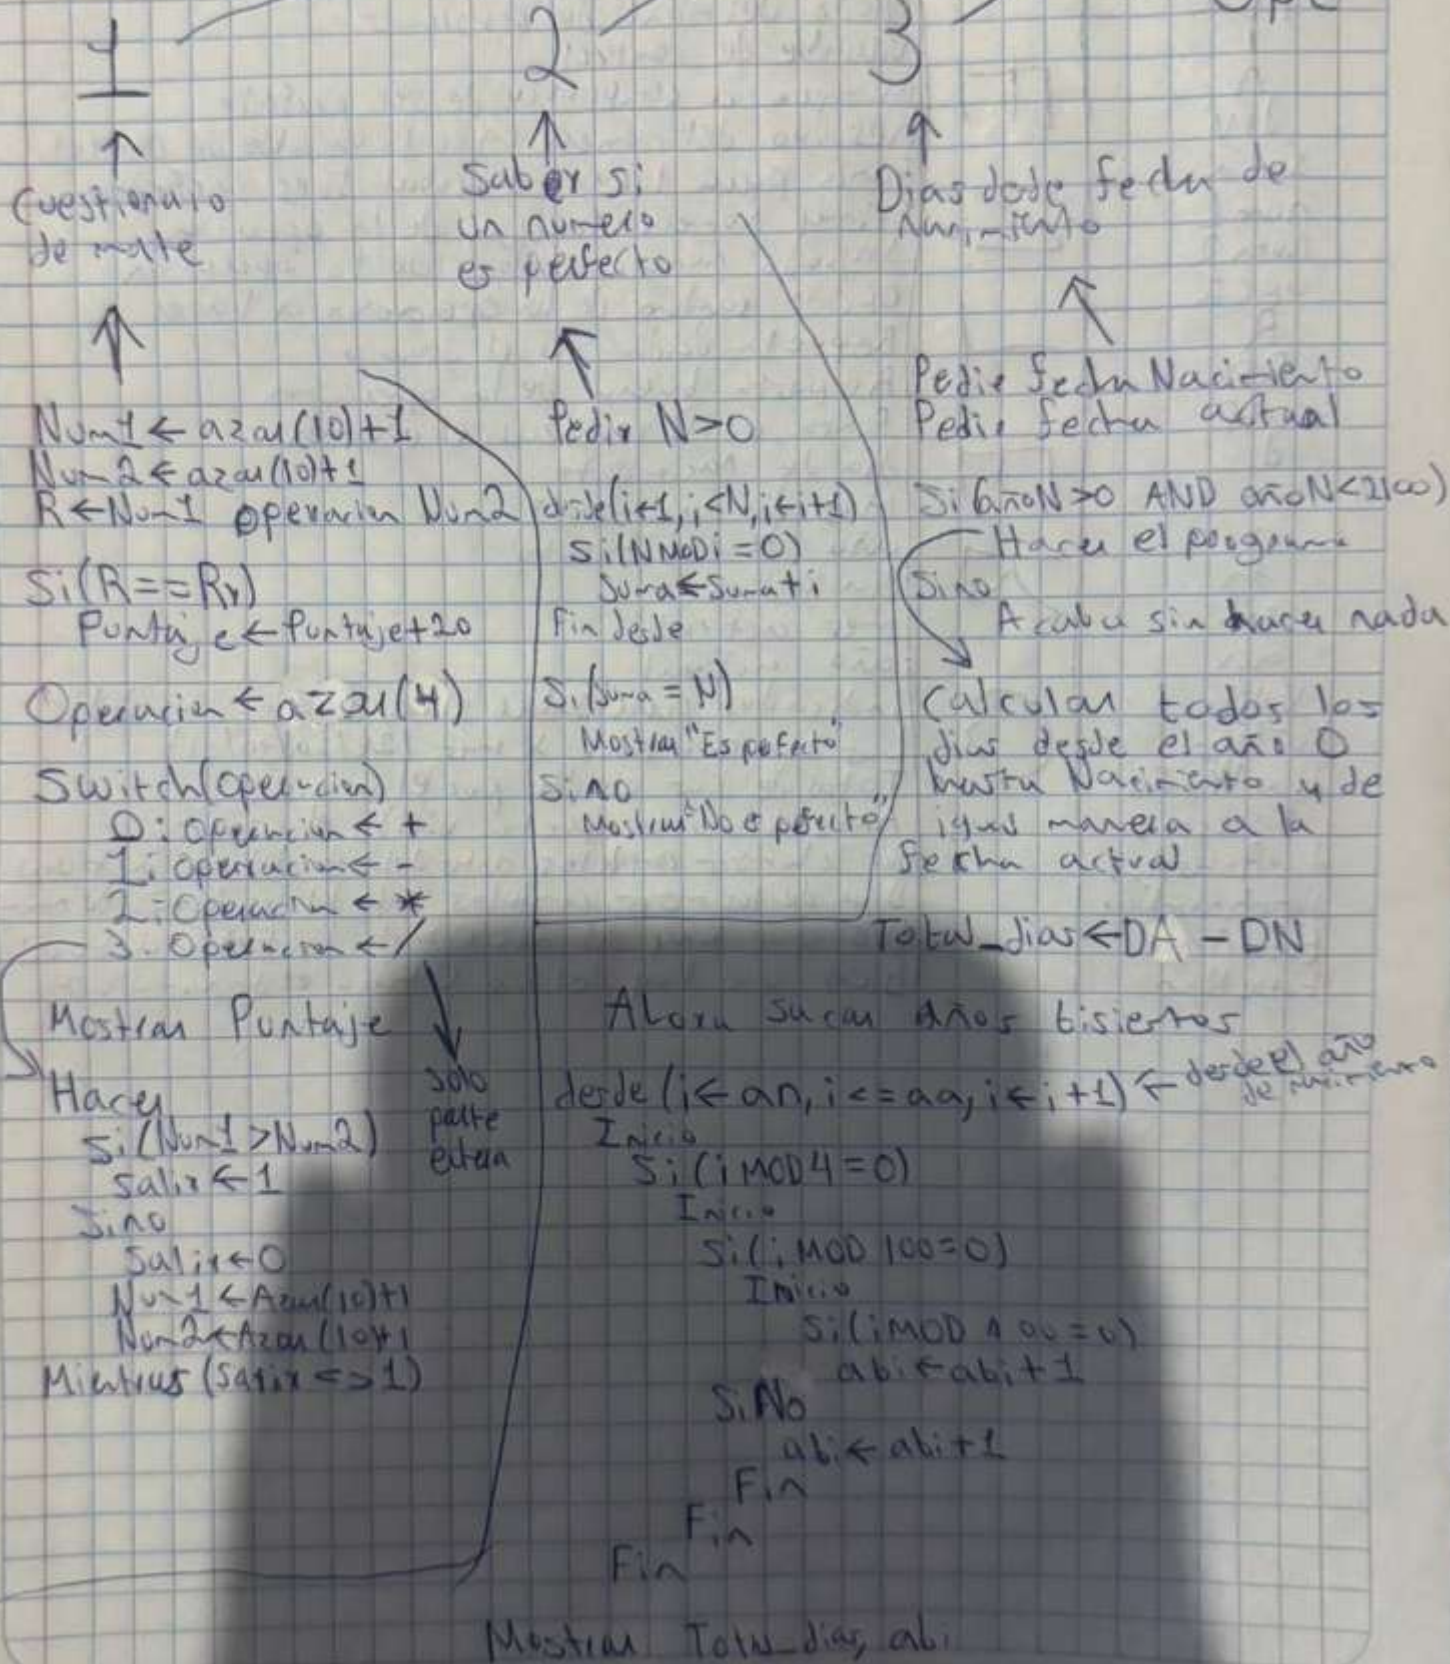 1
Cuestionario
de mate
Num1 ← azar(10)+1
Num2 ← azar(10)+1
R ← Num1 operacion Num2
Si(R==Rr)
Puntaje ← Puntaje+20
Operacion ← azar(4)
Switch(operacion)
0: Operacion ← +
1: operacion ← -
2: Operacion ← *
3: Operacion ← /
solo
parte
entera
Mostrar Puntaje
Hacer
Si(Num1>Num2)
salir ← 1
Sino
Salir ← 0
Num1 ← Azar(10)+1
Num2 ← Azar(10)+1
Mientras (Salir <> 1)
2
Saber si
un numero
es perfecto
Pedir N>0
desde(i←1, i<N, i←i+1)
Si(N MOD i = 0)
Suma ← Suma + i
Fin desde
Si(Suma = N)
Mostrar "Es perfecto"
Sino
Mostrar "No es perfecto"
3
Dias desde fecha de
Nacimiento
Pedir fecha Nacimiento
Pedir fecha actual
Si(añoN >0 AND añoN<2100)
Hacer el programa
Sino
Acaba sin hacer nada
Calcular todos los
dias desde el año 0
hasta Nacimiento y de
igual manera a la
fecha actual
Total_dias ← DA - DN
Ahora sacar Años bisiestos
desde (i ← an, i <= aa, i ← i+1) ← desde el año
de nacimiento
Inicio
Si (i MOD 4 = 0)
Inicio
Si(i MOD 100 = 0)
Inicio
Si(i MOD 400 = 0)
abi ← abi + 1
SiNo
abi ← abi + 1
Fin
Fin
Fin
Mostrar Total_dias, abi